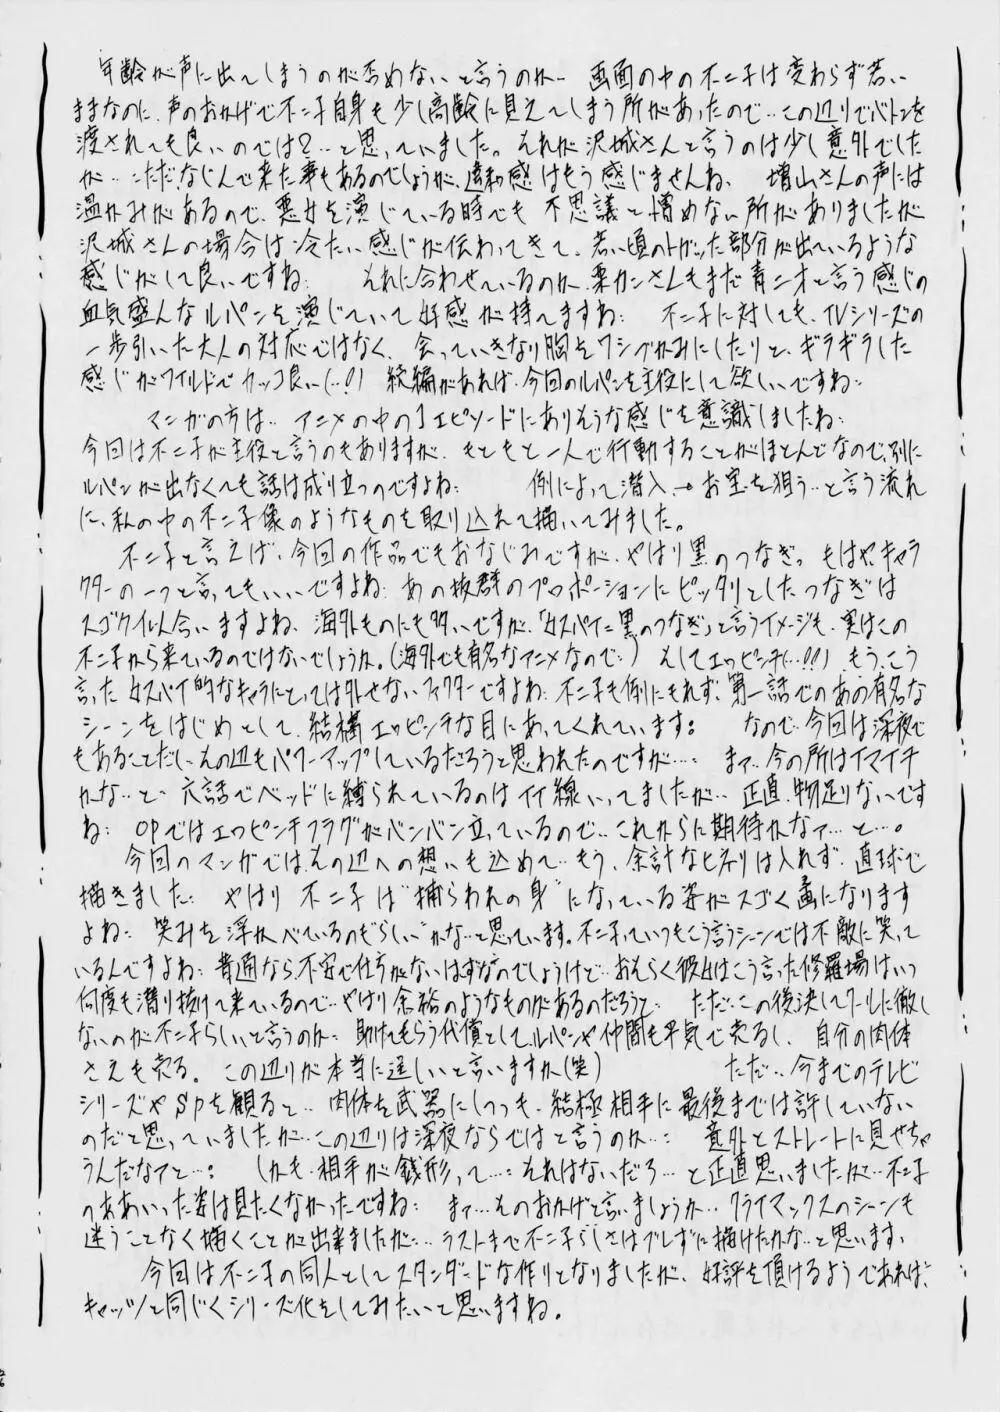 年齢が声に出てしまうのが否めないと言うのか… 画面の中の不二子は変わらず若い
ままなのに、声のおかげで不二子自身も少し高齢に見えてしまう所があったので…この辺りでバトンを
渡されても良いのでは?…と思っていました。それが沢城さんと言うのは少し意外でした
が…ただ、なじんで来た事もあるのでしょうが、違和感はもう感じませんね、 増山さんの声には
温かみがあるので、悪女を演じている時でも 不思議と憎めない所がありましたが
沢城さんの場合は冷たい感じが伝わってきて、若い頃のトガった部分が出ているような
感じがして良いですね: それに合わせているのか、栗カンさんもまだ青二才と言う感じの
血気盛んなルパンを演じていて好感が持てますね: 不二子に対しても、TVシリーズの
一歩引いた大人の対応ではなく、会っていきなり胸をワシヅかみにしたりと、ギラギラした
感じがワイルドでカッコ良い(…!) 続編があれば、今回のルパンを主役にして欲しいですね…
マンガの方は… アニメの中の1エピソードにありそうな感じを意識しましたね:
今回は不二子が主役と言うのもありますが、もともと一人で行動することがほとんどなので、別に
ルパンが出なくても話は成り立つのですよね: 例によって潜入→お宝を狙う…と言う流れ
に、私の中の不二子像のようなものを取り込れて描いてみました。
不二子と言えば、今回の作品でもおなじみですが、やはり黒のつなぎ。もはやキャラ
クターの一つと言ってもいいですよね: あの抜群のプロポーションにピッタリとしたつなぎは
スゴク似合いますよね、海外ものにも多いですが、「女スパイに黒のつなぎ」と言うイメージも、実はこの
不二子から来ているのではないでしょうか。(海外でも有名なアニメなので…) そしてエッピンチ(…!!) もう、こう
言った女スパイ的なキャラにとっては外せないファクターですよね: 不二子も例にもれず、第一話でのあの有名な
シーンをはじめとして、結構エッピンチな目にあってくれています: なので、今回は深夜で
もあることだし、その辺もパワーアップしているだろうと思われたのですが…: まァ…今の所はイマイチ
かな…と… 六話でベッドに縛られているのはイイ線いってましたが… 正直、物足りないです
ね: OPではエッピンチフラグがバンバン立っているので…これからに期待かなァ…と…。
今回のマンガではその辺への想いも込めて…もう、余計なヒネリは入れず、直球で
描きました: やはり 不二子は"捕らわれの身"になっている姿がスゴく画になります
よね: 笑みを浮かべているのも"らしい"かな…と思っています。不二子っていつもこう言うシーンでは不敵に笑って
いるんですよね: 普通なら、不安で仕方がないはずなのでしょうけど…おそらく彼女はこう言った修羅場はいつ
何度も潜り抜けて来ているので…やはり余裕のようなものがあるのだろうと… ただ…この後決してクールに徹し
ないのが不二子らしいと言うのか… 助けてもらう代償として、ルパンや仲間も平気で売るし、 自分の肉体
さえも売る。この辺りが本当に逞しいと言いますか(笑) ただ…今までのテレビ
シリーズやSPを観ると… 肉体を武器にしつつも、結極相手に最後までは許していない
のだと思っていましたが…この辺りは深夜ならではと言うのか…: 意外とストレートに見せちゃ
うんだなァと…: しかも、相手が銭形って…: それはないだろ…と正直思いましたが…不二子
のああいった姿は見たくなかったですね: まァ…そのおかげと言いましょうか… クライマックスのシーンも
迷うことなく描くことが出来ましたが… ラストまで不二子らしさはブレずに描けたかな…と思います。
今回は不二子の同人としてスタンダードな作りとなりましたが、好評を頂けるようであれば、
キャッツと同じくシリーズ化をしてみたいと思いますね。